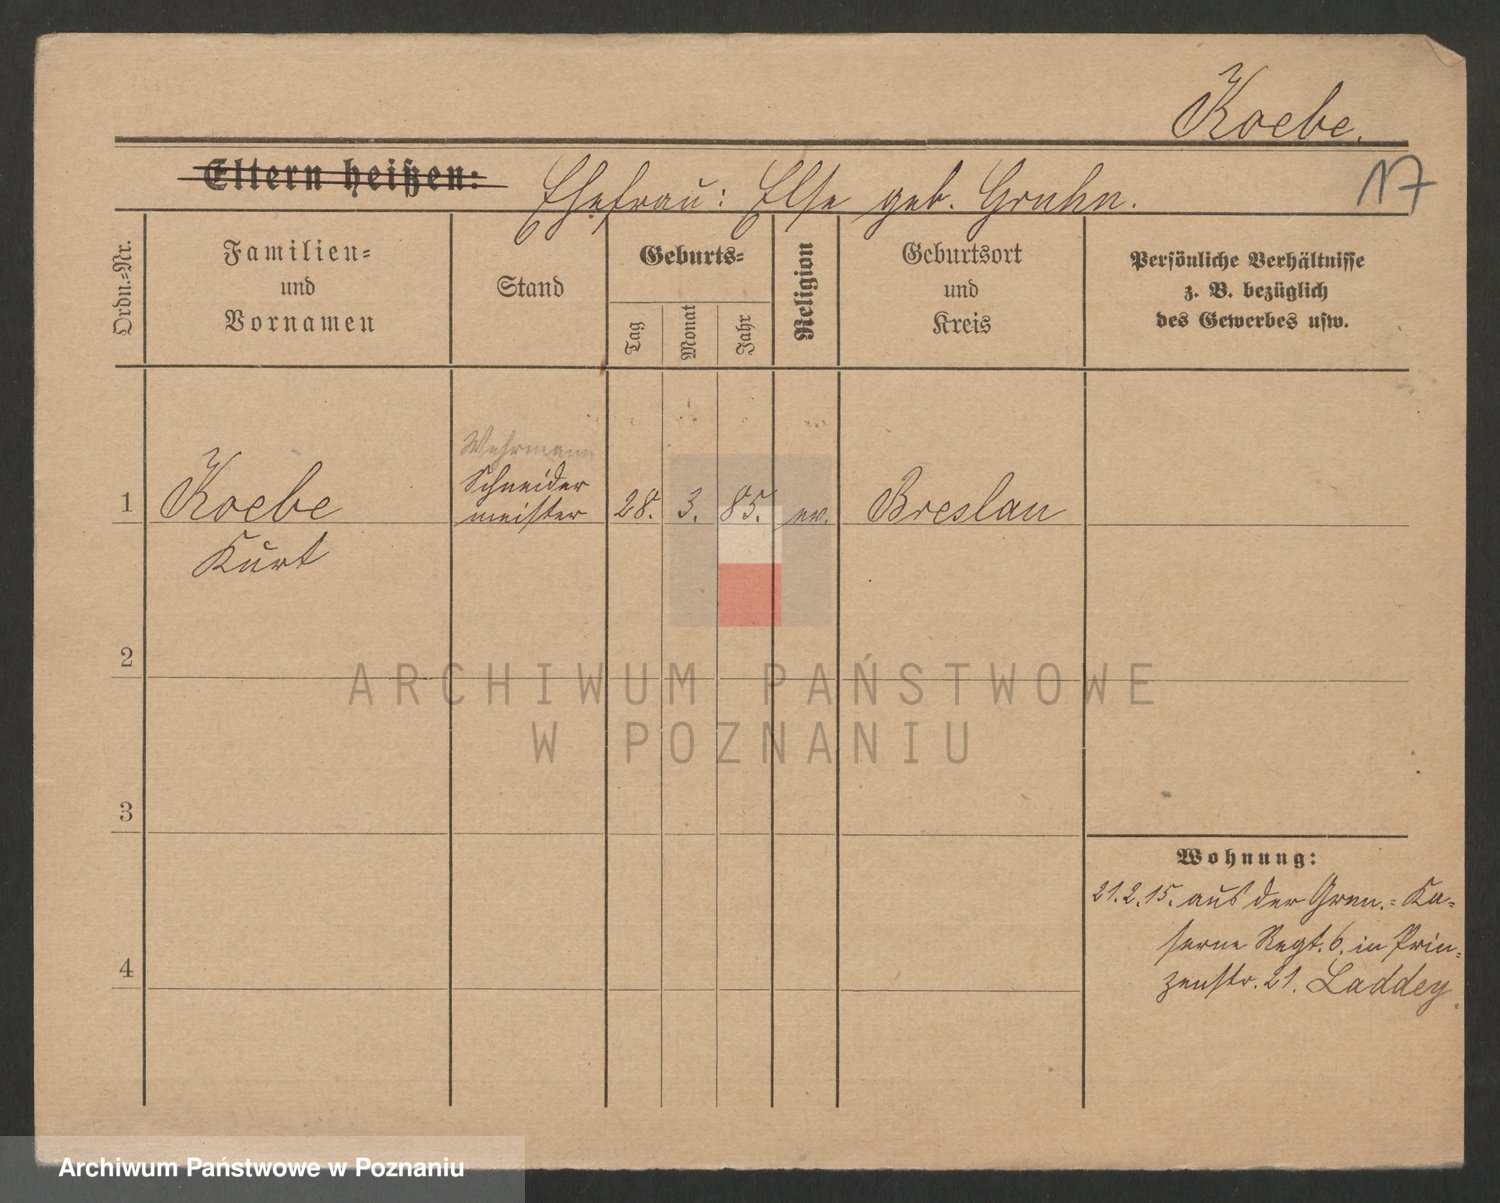 Koebe.
Eltern heißen: Ehefrau: Else geb. Gruhn.
17
Ordn.-Nr.
Familien-
und
Vornamen
Stand
Geburts-
Tag
Monat
Jahr
Religion
Geburtsort
und
Kreis
Persönliche Verhältnisse
z. B. bezüglich
des Gewerbes usw.
Wehrmann
Schneider
meister
1 Koebe 28. 3. 85. ev. Breslau
Kurt
2
ARCHIWUM PAŃSTWOWE
W POZNANIU
3
Wohnung:
21.2.15. aus der Gren.-Ka-
serne Regt. 6. in Prin-
zenstr. 21. Laddey.
4
Archiwum Państwowe w Poznaniu